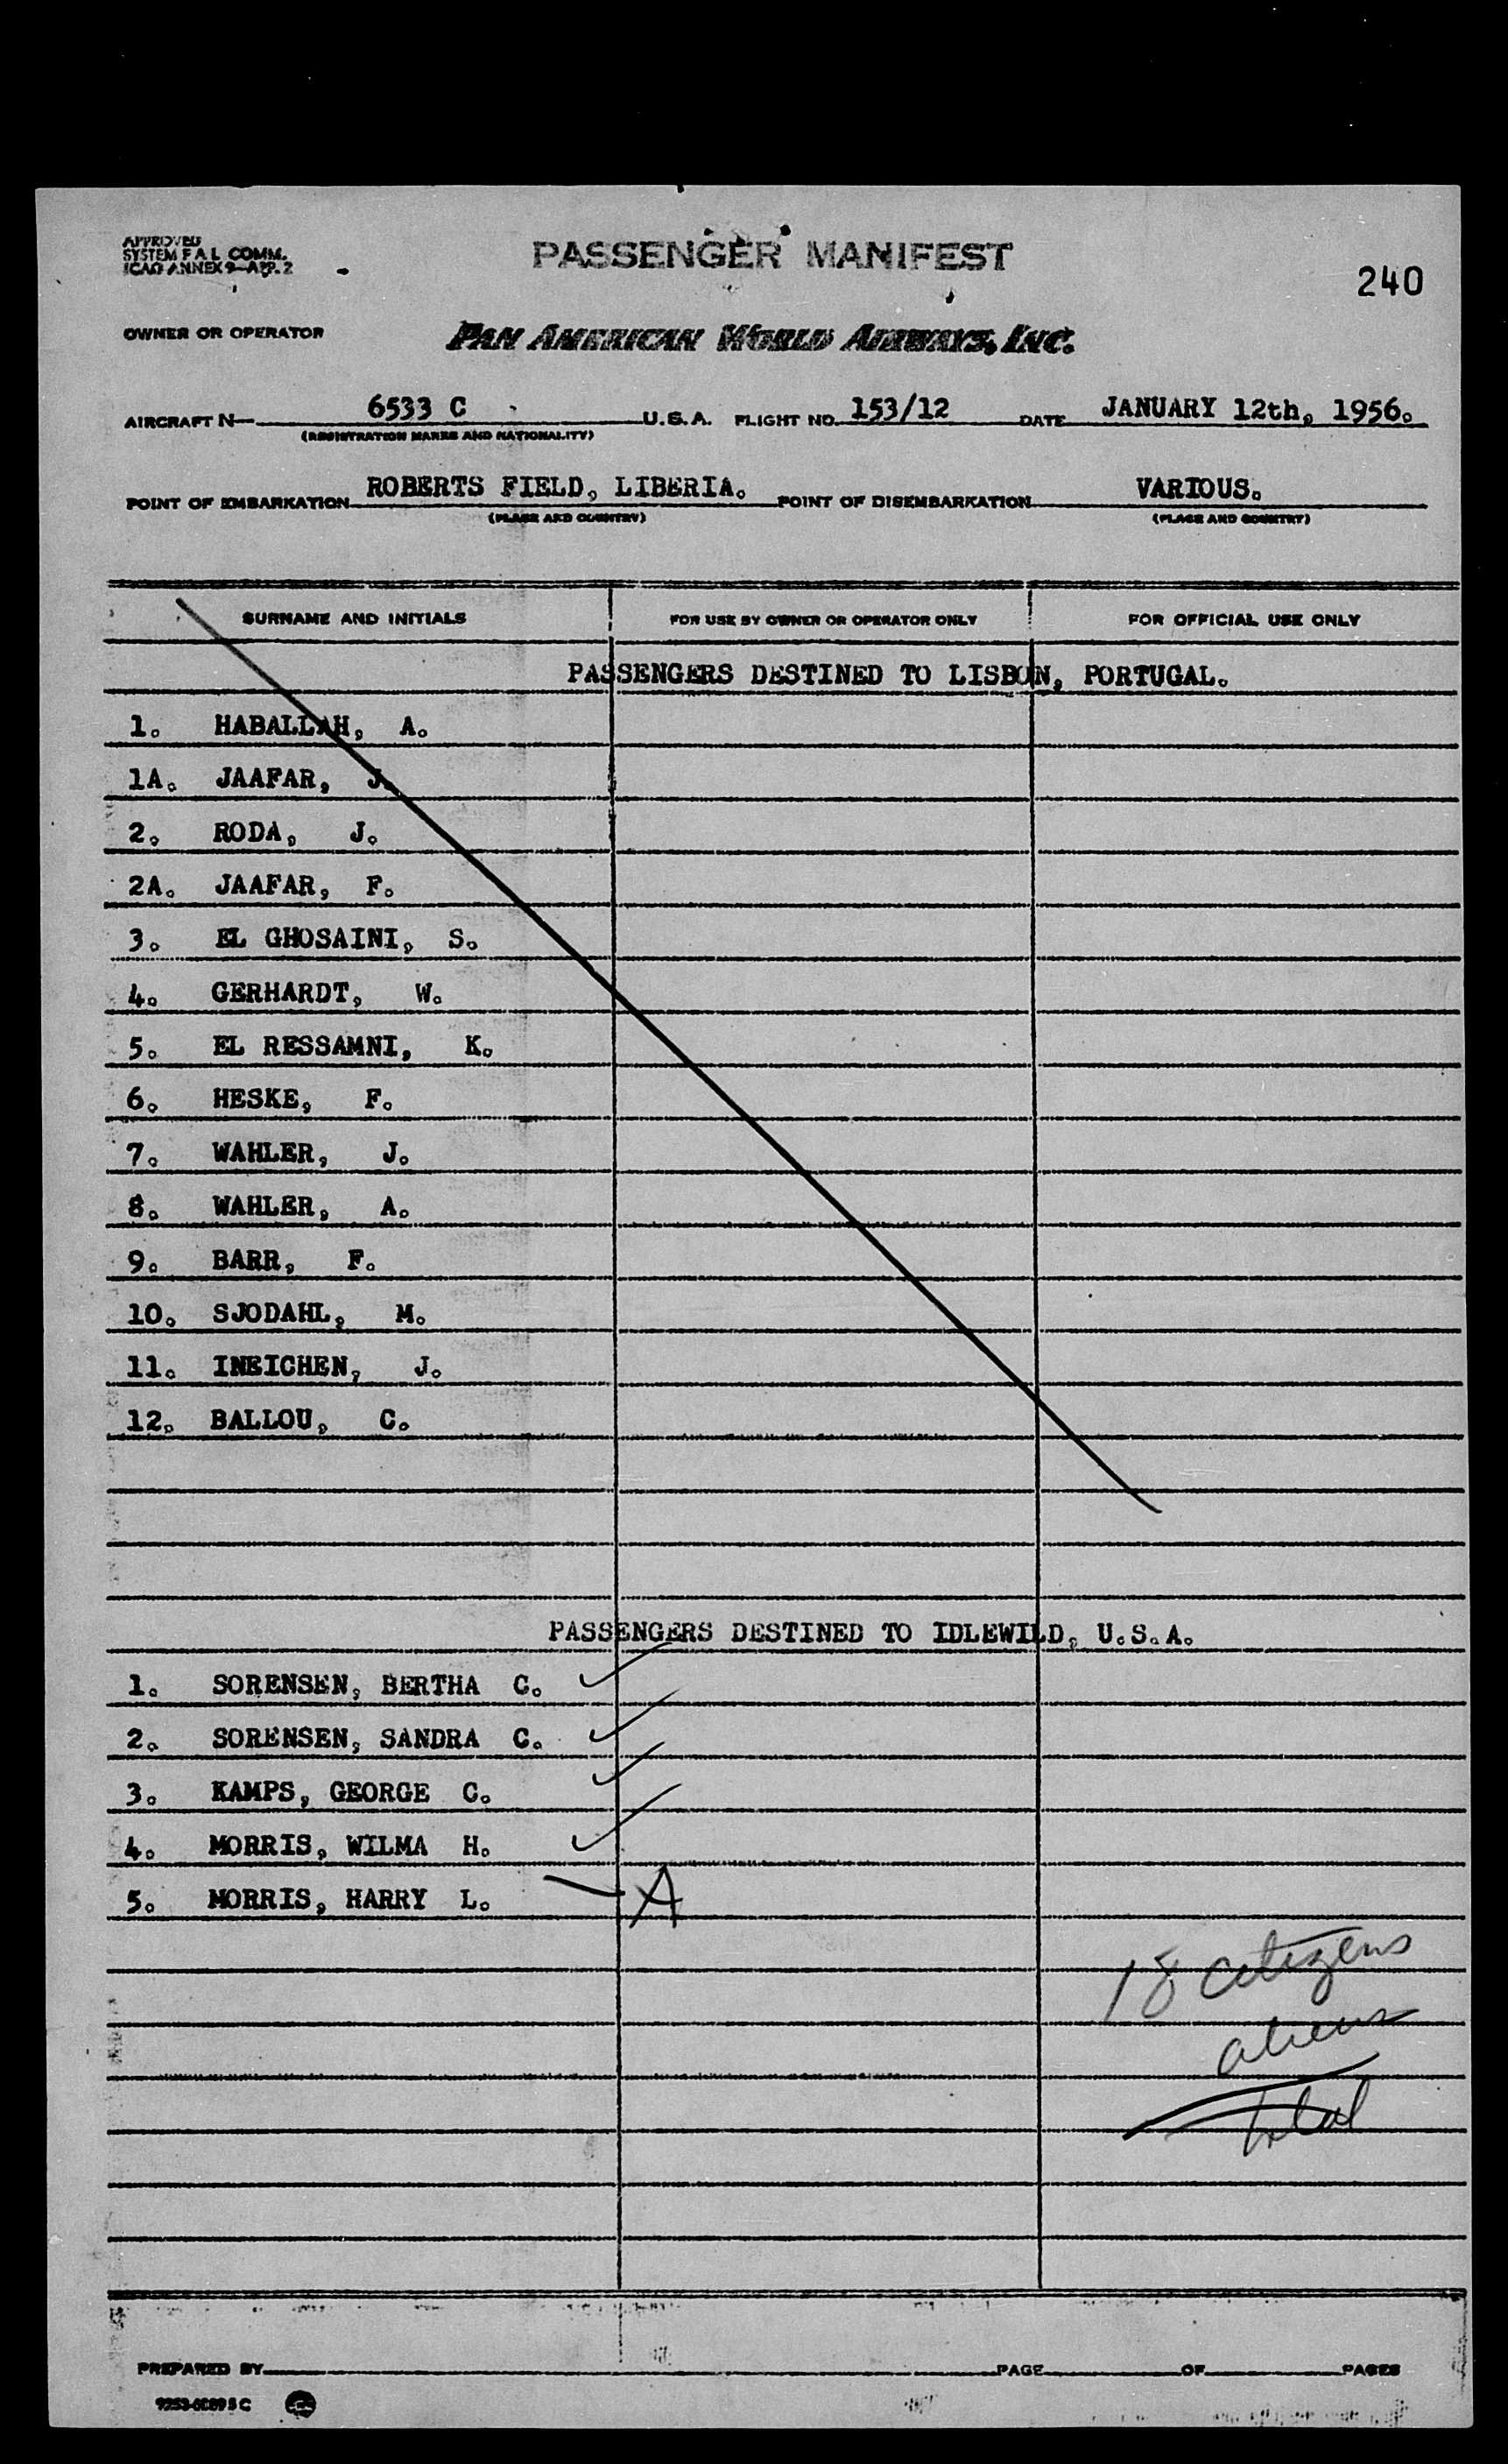 APPROVED
SYSTEM F A L COMM.
ICAO ANNEX 9-APP. 2
PASSENGER MANIFEST
240
OWNER OR OPERATOR
PAN AMERICAN WORLD AIRWAYS, INC.
AIRCRAFT N- 6533 C U.S.A. FLIGHT NO. 153/12 DATE JANUARY 12th, 1956.
(REGISTRATION MARKS AND NATIONALITY)
POINT OF EMBARKATION ROBERTS FIELD, LIBERIA. POINT OF DISEMBARKATION VARIOUS.
(PLACE AND COUNTRY) (PLACE AND COUNTRY)
SURNAME AND INITIALS FOR USE BY OWNER OR OPERATOR ONLY FOR OFFICIAL USE ONLY
PASSENGERS DESTINED TO LISBON, PORTUGAL.
1. HABALLAH, A.
1A. JAAFAR, J.
2. RODA, J.
2A. JAAFAR, F.
3. EL GHOSAINI, S.
4. GERHARDT, W.
5. EL RESSAMNI, K.
6. HESKE, F.
7. WAHLER, J.
8. WAHLER, A.
9. BARR, F.
10. SJODAHL, M.
11. INEICHEN, J.
12. BALLOU, C.
PASSENGERS DESTINED TO IDLEWILD, U.S.A.
1. SORENSEN, BERTHA C.
2. SORENSEN, SANDRA C.
3. KAMPS, GEORGE C.
4. MORRIS, WILMA H.
5. MORRIS, HARRY L. A
18 citizens
aliens
total
PREPARED BY PAGE OF PAGES